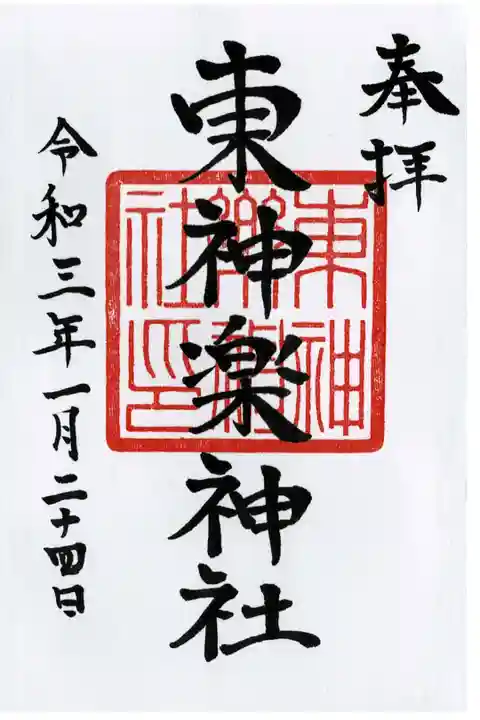 奉拝
東神楽神社
東神
楽神
社印
令和三年一月二十四日